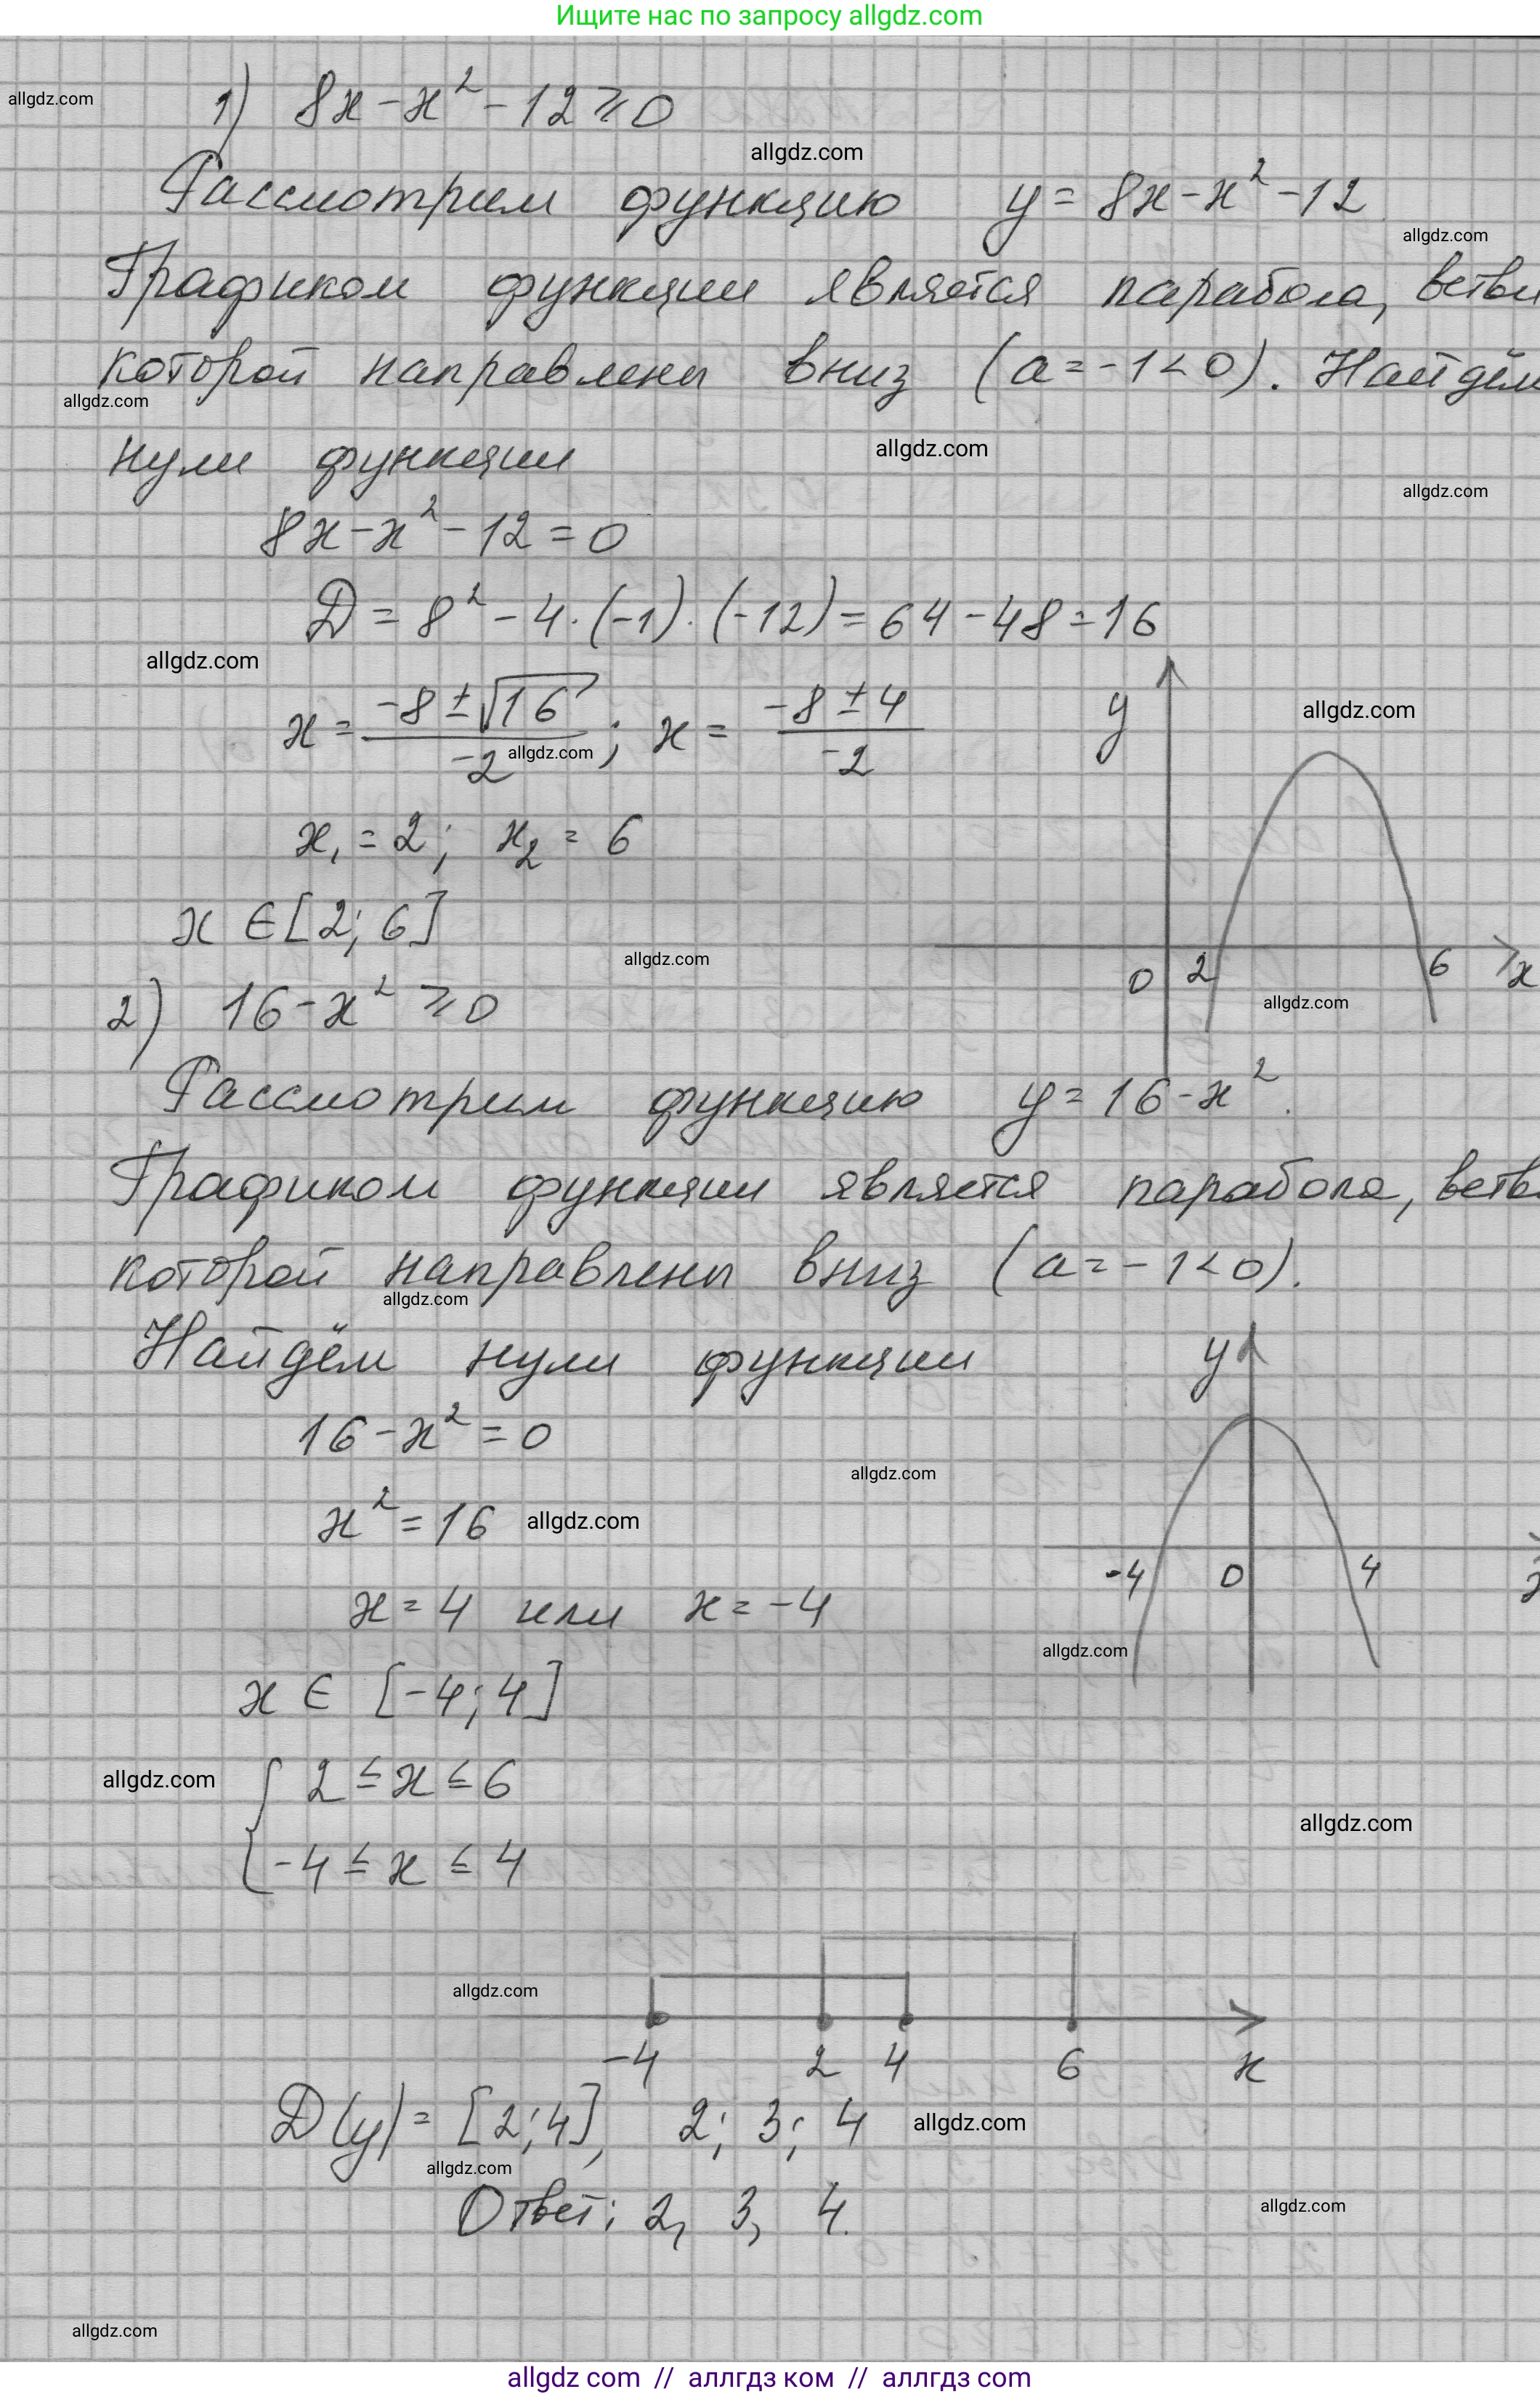 Ищите нас по запросу allgdz.com
1) 8x - x² - 12 ≥ 0
allgdz.com
allgdz.com
Рассмотрим функцию y = 8x - x² - 12
allgdz.com
Графиком функции является парабола, ветви
которой направлены вниз (a = -1 < 0). Найдём
allgdz.com
нули функции
allgdz.com
allgdz.com
8x - x² - 12 = 0
D = 8² - 4·(-1)·(-12) = 64 - 48 = 16
allgdz.com
x = (-8 ± √16)/(-2); x = (-8 ± 4)/(-2)
allgdz.com
y
allgdz.com
x₁ = 2; x₂ = 6
x ∈ [2; 6]
allgdz.com
0 2 6 x
allgdz.com
2) 16 - x² ≥ 0
Рассмотрим функцию y = 16 - x².
Графиком функции является парабола, ветви
которой направлены вниз (a = -1 < 0).
allgdz.com
Найдём нули функции
y
16 - x² = 0
allgdz.com
x² = 16
allgdz.com
-4 0 4 x
x = 4 или x = -4
allgdz.com
x ∈ [-4; 4]
allgdz.com
{ 2 ≤ x ≤ 6
-4 ≤ x ≤ 4
allgdz.com
allgdz.com
-4 2 4 6 x
D(y) = [2; 4], 2; 3; 4
allgdz.com
allgdz.com
Ответ: 2, 3, 4.
allgdz.com
allgdz.com
allgdz com // аллгдз ком // аллгдз com